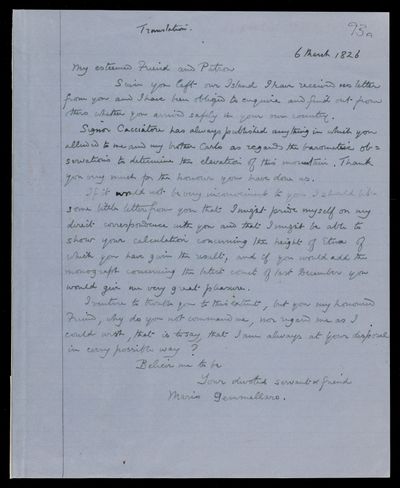 Translation.
93a
6 March 1826
My esteemed Friend and Patron
Since you left our Island I have received no letter
from you and I have been obliged to enquire and find out from
others whether you arrived safely in your own country.
Signor Cacciatore has always published anything in which you
allude to me and my brother Carlo as regards the barometric ob=
servations to determine the elevation of this mountain. Thank
you very much for the honour you have done us.
If it would not be very inconvenient to you I should like
some little letter from you that I might pride myself on my
direct correspondence with you and that I might be able to
show your calculation concerning the height of Etna of
which you have given the result, and if you would add the
monograph concerning the latest comet of last December you
would give me very great pleasure.
I venture to trouble you to this extent, but you my honoured
Friend, why do you not command me, nor regard me as I
could wish, that is to say, that I am always at your disposal
in every possible way?
Believe me to be
Your devoted servant & friend
Mario Gemmellaro.